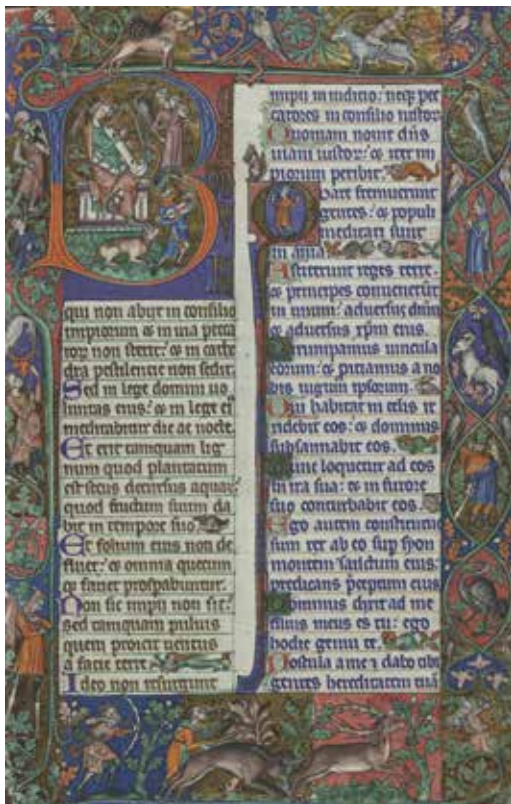 B
qui non abiit in consilio
impiorum & in via pecca
tor̄ non stetit: & in cathe
dra pestilencie non sedit.
Sed in lege domini uo
luntas eius: & in lege eī
meditabitur die ac nocte.
Et erit tamquam lig
num quod plantatum
est secus decursus aquar̄
quod fructum suum da
bit in tempore suo
Et folium eius non de
fluet: & omnia quecum
q; faciet prosperabuntur.
Non sic impii non sic:
sed tamquam puluis
quem proicit uentus
a facie terre
Ideo non resurgunt
impii in iudicio: neq; pec
catores in consilio iustor̄
Quoniam nouit dn̄s
uiam iustor̄: & iter im
piorum peribit.
Quare fremuerunt
gentes: & populi
meditati sunt
in ania
Astiterunt reges terre.
& principes conuenerūt
in unum: aduersus dn̄m
& aduersus xp̄m eius.
Dirumpamus uincula
eorum: & proiciamus a no
bis iugum ipsorum.
Qui habitat in celis ir
ridebit eos: & dominus
subsannabit eos.
Tunc loquetur ad eos
in ira sua: & in furore
suo conturbabit eos.
Ego autem constitutus
sum rex ab eo sup syon
montem sanctum eius:
predicans preceptum eius
Dominus dixit ad me
filius meus es tu: ego
hodie genui te.
Postula a me & dabo tibi
gentes hereditatem tuā